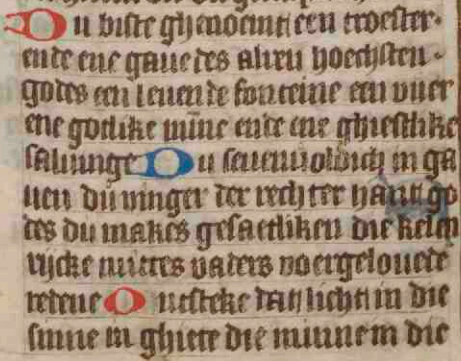 Du biste ghenoemt een troester
ende ene gaue des alren hoechsten
godes een leuende fonteine een vuer
ene gotlike mine ende ene ghiestlike
saluinge Du seuenuoldich in ga
uen du vinger der rechter hant go
des du makes gesaetliken die kelen
rijcke mittes vaders voergelouede
redene Ontsteke dat licht in die
sinne in ghiete die minne in die